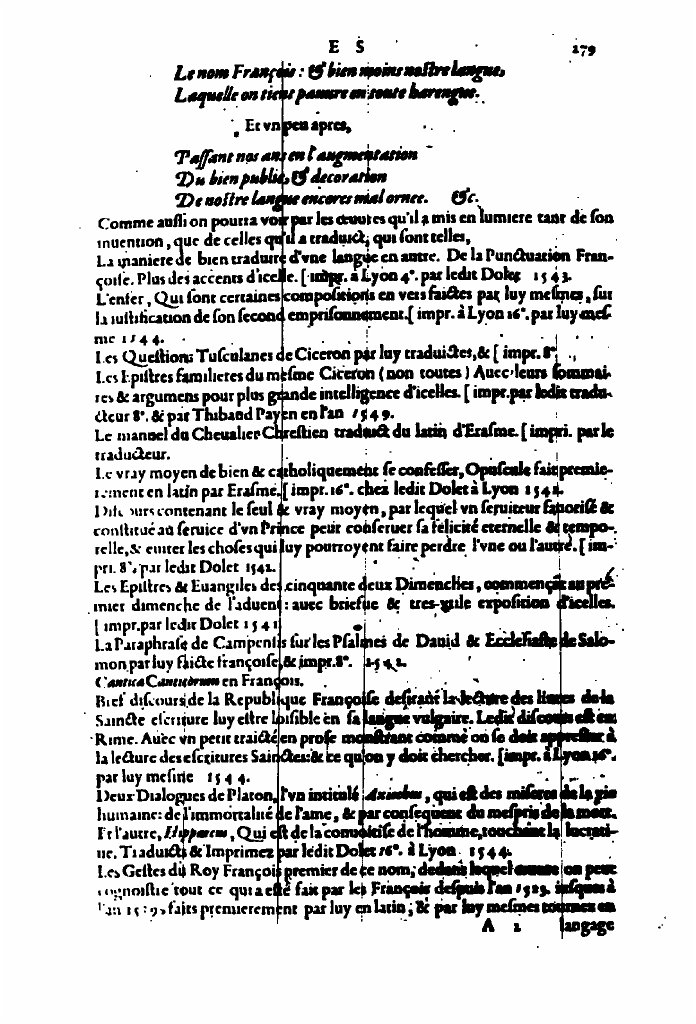 E S 279
Le nom François : & bien moins nostre langue,
Laquelle on tient pauure en toute harengue.
Et vn peu apres,
Passant nos ans en l'augmentation
Du bien public, & decoration
De nostre langue encores mal ornee. &c.
Comme aussi on pourra voir par les œuures qu'il a mis en lumiere tant de son
inuention, que de celles qu'il a traduict, qui sont telles,
La maniere de bien traduire d'vne langue en autre. De la Punctuation Fran-
çoise. Plus des accents d'icelle. [impr. à Lyon 4°. par ledit Dolet 1543.
L'enfer, Qui sont certaines compositions en vers faictes par luy mesmes, sur
la iustification de son second emprisonnement. [impr. à Lyon 16°. par luy mes-
me 1544.
Les Questions Tusculanes de Ciceron par luy traduictes, & [impr. 8°.
Les Epistres familieres du mesme Ciceron (non toutes) Auec leurs sommai-
res & argumens pour plus grande intelligence d'icelles. [impr. par ledit tradu-
cteur 8°. & par Thibaud Payen en l'an 1549.
Le manuel du Cheualier Chrestien traduict du latin d'Erasme. [impri. par le
traducteur.
Le vray moyen de bien & catholiquement se confesser, Opuscule fait premie-
rement en latin par Erasme. [impr. 16°. chez ledit Dolet à Lyon 1542.
Discours contenant le seul & vray moyen, par lequel vn seruiteur fauorisé &
constitué au seruice d'vn Prince peut conseruer sa felicité eternelle & tempo-
relle, & euiter les choses qui luy pourroyent faire perdre l'vne ou l'autre. [im-
pri. 8°. par ledit Dolet 1542.
Les Epistres & Euangiles des cinquante deux Dimenches, commençãt au pre-
mier dimenche de l'aduent : auec briefue & tres-vtile exposition d'icelles.
[impr. par ledit Dolet 1541
La Paraphrase de Campensis sur les Psalmes de Dauid & Ecclesiaste de Salo-
mon par luy faicte françoise, & impr. 8°. 1542.
Cantica Canticorum en François.
Brief discours de la Republique Françoise desirãt la lecture des liures de la
Saincte escriture luy estre loisible en sa langue vulgaire. Ledit discours est en
Rime. Auec vn petit traicté en prose monstrant comme on se doit apprester à
la lecture des escritures Sainctes: & ce qu'on y doit chercher. [impr. à Lyon 16°.
par luy mesme 1544.
Deux Dialogues de Platon, l'vn intitulé Axiochus, qui est des miseres de la vie
humaine: de l'immortalité de l'ame, & par consequent du mespris de la mort.
Et l'autre, Hipparcus, Qui est de la conuoitise de l'homme, touchant la lucrati-
ue. Traduicts & Imprimez par ledit Dolet 16°. à Lyon 1544.
Les Gestes du Roy François premier de ce nom, dedens lequel œuure on peut
cognoistre tout ce qui a esté fait par les François despuis l'an 1513. iusques à
l'an 1539. faits premierement par luy en latin, & par luy mesmes tournez en
A 2 langage